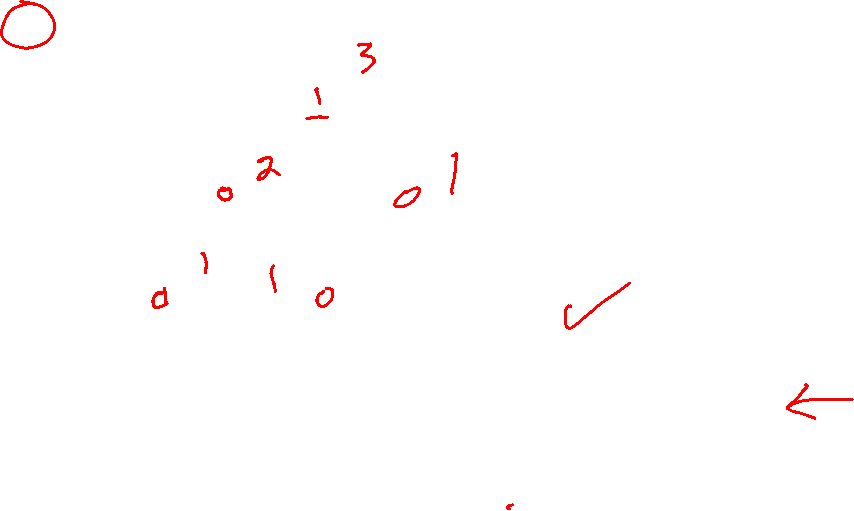 3
1
0 2 0 1
0 1 1 0